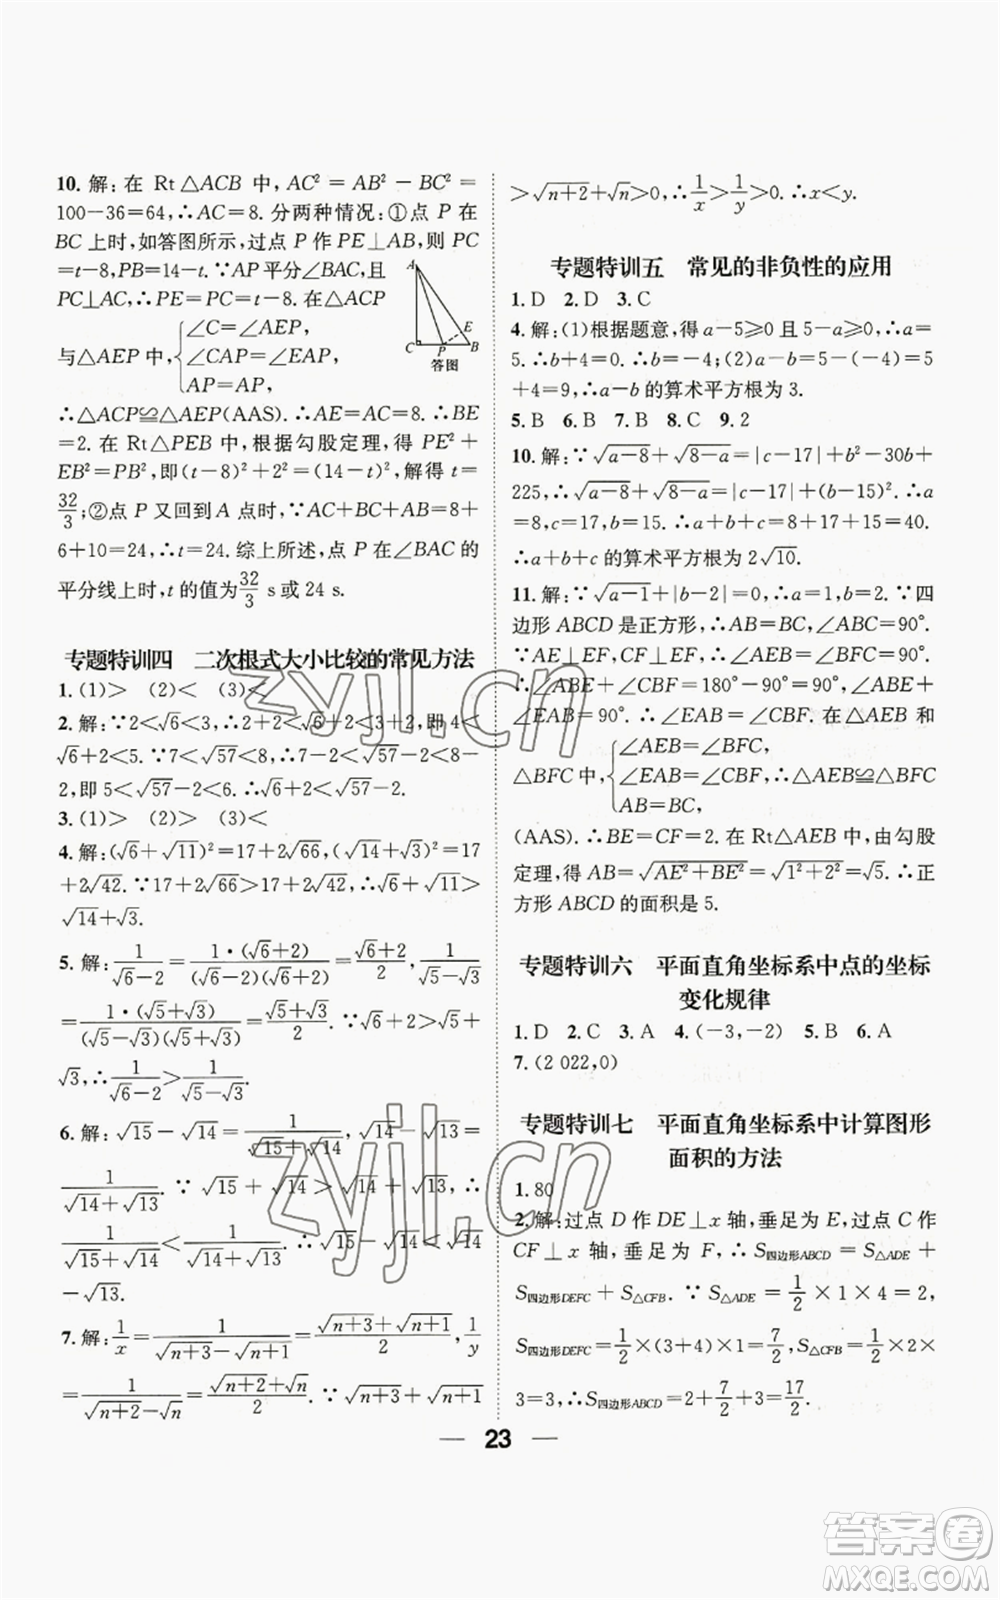 10. 解:在 Rt△ACB 中, AC² = AB² − BC² =
100−36=64,∴AC=8. 分两种情况:①点 P 在
BC 上时,如答图所示,过点 P 作 PE⊥AB,则 PC
=t−8,PB=14−t. ∵AP 平分∠BAC,且
PC⊥AC,∴PE=PC=t−8. 在△ACP
与△AEP 中,{∠C=∠AEP,
∠CAP=∠EAP,
AP=AP,
A
E
C P B
答图
∴△ACP≌△AEP(AAS). ∴AE=AC=8. ∴BE
=2. 在 Rt△PEB 中,根据勾股定理,得 PE²+
EB²=PB²,即(t−8)²+2²=(14−t)²,解得 t=
32/3;②点 P 又回到 A 点时,∵AC+BC+AB=8+
6+10=24,∴t=24. 综上所述,点 P 在∠BAC 的
平分线上时,t 的值为32/3 s或24 s.
专题特训四 二次根式大小比较的常见方法
1. (1)> (2)< (3)<
2. 解:∵2<√6<3,∴2+2<√6+2<3+2,即 4<
√6+2<5. ∵7<√57<8,∴7−2<√57−2<8−
2,即 5<√57−2<6. ∴√6+2<√57−2.
3. (1)> (2)> (3)<
4. 解:(√6+√11)²=17+2√66,(√14+√3)²=17
+2√42. ∵17+2√66>17+2√42,∴√6+√11>
√14+√3.
5. 解:1/(√6−2)=1·(√6+2)/((√6−2)(√6+2))=(√6+2)/2,1/(√5−√3)
=1·(√5+√3)/((√5−√3)(√5+√3))=(√5+√3)/2. ∵√6+2>√5+
√3,∴1/(√6−2)>1/(√5−√3).
6. 解:√15−√14=1/(√15+√14),√14−√13=
1/(√14+√13). ∵√15+√14>√14+√13,∴
1/(√15+√14)<1/(√14+√13). ∴√15−√14<√14
−√13.
7. 解:1/x=1/(√(n+3)−√(n+1))=(√(n+3)+√(n+1))/2,1/y
=1/(√(n+2)−√n)=(√(n+2)+√n)/2. ∵√(n+3)+√(n+1)
>√(n+2)+√n>0,∴1/x>1/y>0. ∴x<y.
专题特训五 常见的非负性的应用
1. D 2. D 3. C
4. 解:(1)根据题意,得 a−5≥0 且 5−a≥0,∴a=
5. ∴b+4=0. ∴b=−4;(2)a−b=5−(−4)=5
+4=9,∴a−b 的算术平方根为 3.
5. B 6. B 7. B 8. C 9. 2
10. 解:∵√(a−8)+√(8−a)=|c−17|+b²−30b+
225,∴√(a−8)+√(8−a)=|c−17|+(b−15)². ∴a
=8,c=17,b=15. ∴a+b+c=8+17+15=40.
∴a+b+c 的算术平方根为 2√10.
11. 解:∵√(a−1)+|b−2|=0,∴a=1,b=2. ∵四
边形 ABCD 是正方形,∴AB=BC,∠ABC=90°.
∵AE⊥EF,CF⊥EF,∴∠AEB=∠BFC=90°.
∴∠ABE+∠CBF=180°−90°=90°,∠ABE+
∠EAB=90°. ∴∠EAB=∠CBF. 在△AEB 和
△BFC 中,{∠AEB=∠BFC,
∠EAB=∠CBF,∴△AEB≌△BFC
AB=BC,
(AAS). ∴BE=CF=2. 在 Rt△AEB 中,由勾股
定理,得 AB=√(AE²+BE²)=√(1²+2²)=√5. ∴正
方形 ABCD 的面积是 5.
专题特训六 平面直角坐标系中点的坐标
变化规律
1. D 2. C 3. A 4. (−3,−2) 5. B 6. A
7. (2 022,0)
专题特训七 平面直角坐标系中计算图形
面积的方法
1. 80
2. 解:过点 D 作 DE⊥x 轴,垂足为 E,过点 C 作
CF⊥x 轴,垂足为 F,∴S四边形ABCD=S△ADE+
S四边形DEFC+S△CFB. ∵S△ADE=1/2×1×4=2,
S四边形DEFC=1/2×(3+4)×1=7/2,S△CFB=1/2×2×
3=3,∴S四边形ABCD=2+7/2+3=17/2.
— 23 —
zyjl.cn
zyjl.cn
答案圈
MXQE.COM